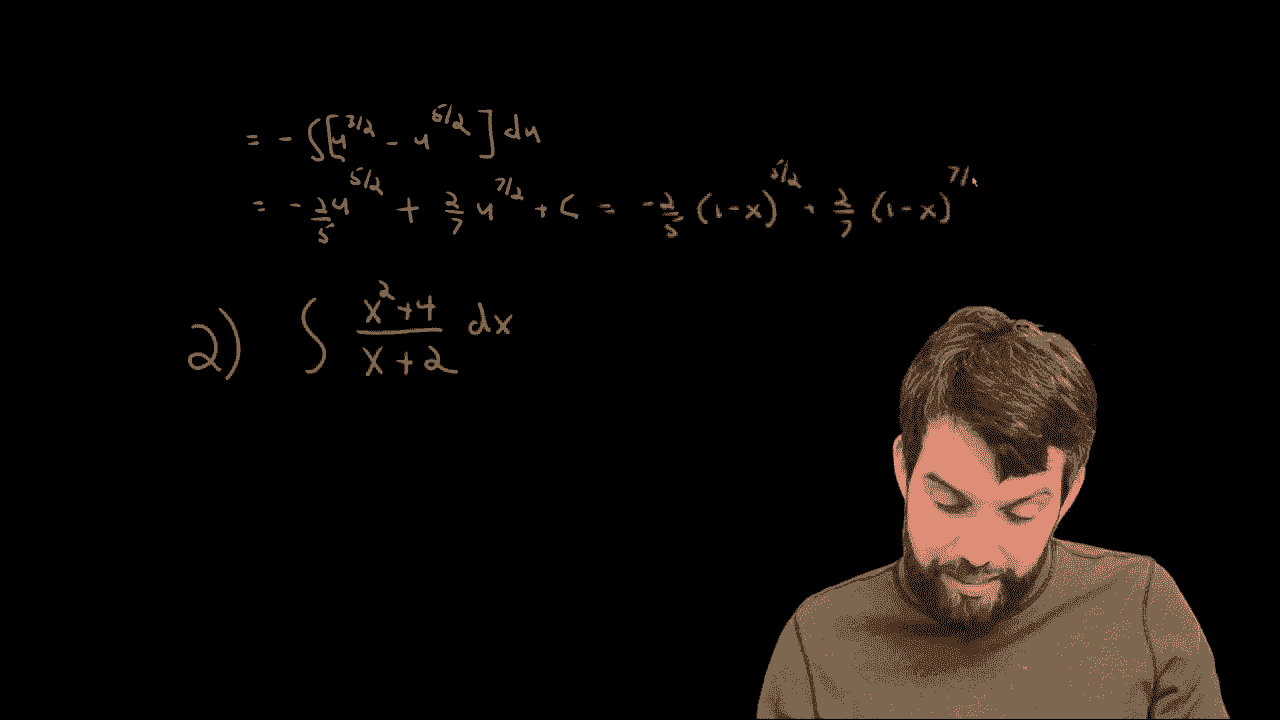 = - ∫[u^{3/2} - u^{5/2}] du
= -2/5 u^{5/2} + 2/7 u^{7/2} + C = -2/5 (1-x)^{5/2} + 2/7 (1-x)^{7/
2) ∫ (x^2+4)/(x+2) dx